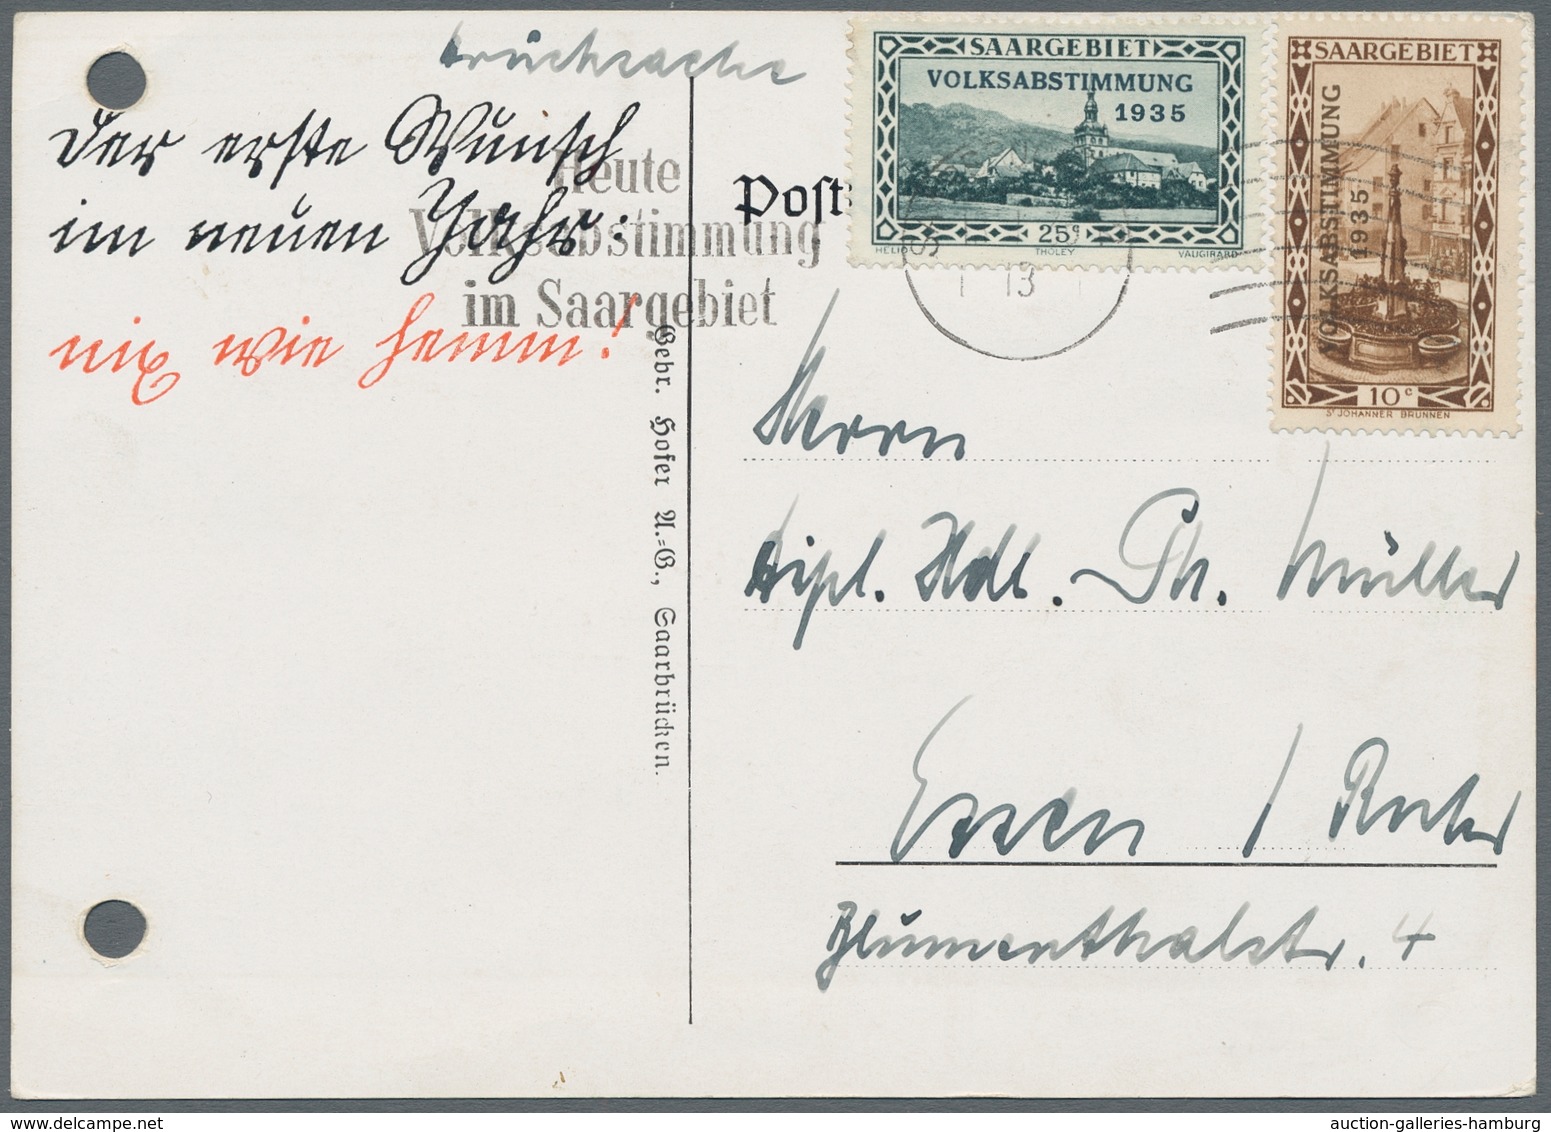 Drucksache
der erste Wunsch
im neuen Jahr:
nix wie hemm!
Heute
Volksabstimmung
im Saargebiet
Post
SAARGEBIET
VOLKSABSTIMMUNG
1935
25c
HELIO THOLEY VAUGIRARD
SAARGEBIET
VOLKSABSTIMMUNG
1935
10c
ST JOHANNER BRUNNEN
13
Gebr. Hofer A.=G., Saarbrücken.
Herrn
Dipl. Hdl. Ph. Müller
Essen / Ruhr
Blumenthalstr. 4
auction-galleries-hamburg